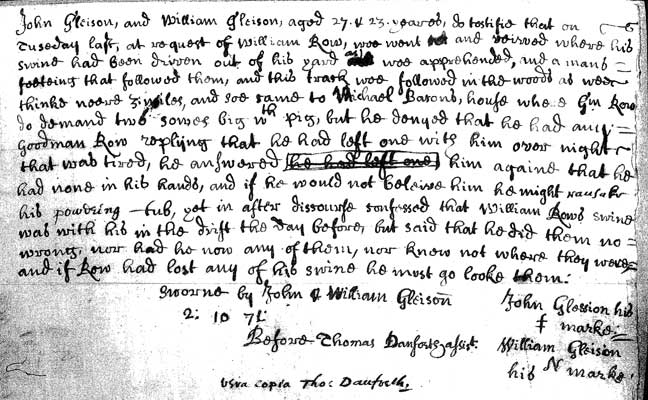 John Gleison, and William Gleison, aged 27. & 23. yeares, do testifie that on
Tuseday last, at request of William Row, wee went and veiwed where his
swine had been driven out of his yard wee apprehended, and a mans
footeing that followed them, and this track wee followed in the woods as wee
thinke neere 3. miles, and soe came to Michael Barons, house where Gm Row
do demand two sowes big wth pig, but he denyed that he had any
Goodman Row replijng that he had left one with him over night
that was tired, he answered he had left one him againe that he
had none in his hands, and if he would not beleive him he might ransake
his powdring-tub, yet in after discourse confessed that William Rows swine
was with his in the drift the day before, but said that he did them no
wrong, nor had he now any of them, nor knew not where they were
and if Row had lost any of his swine he must go looke them:
Sworne by John & William Gleison
2: 10 71.
Before Thomas Danforth, assist.
John Glession his
marke
William Gleison
his marke.
vera copia Tho: Danforth,